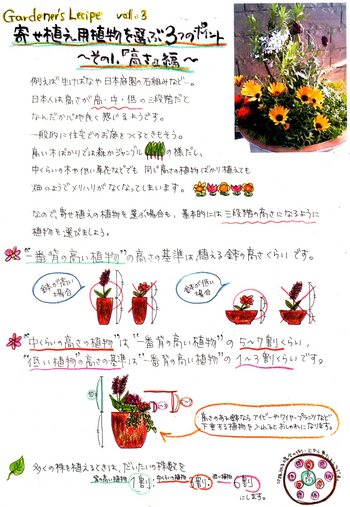 Gardener's Recipe vol.3
寄せ植え用植物を選ぶ3つのポイント
〜その1.『高さ』編〜
例えば生けばなや日本庭園の石組みなど…。
日本人は高さが高・中・低の三段階だと
なんだか心地良く感じるようです。
一般的に住宅でのお庭をつくるときもそう。
高い木ばかりでは森かジャングルの様だし、
中くらいの木や低い草花などでも同じ高さの植物ばかり植えても
畑のようでメリハリがなくなってしまいます。
なので、寄せ植えの植物を選ぶ場合も、基本的には三段階の高さになるように
植物を選びましょう。
"一番背の高い植物"の高さの基準は植える鉢の高さくらいです。
鉢が高い場合
鉢が低い場合
"中くらいの高さの植物"は"一番背の高い植物"の5〜7割くらい、
"低い植物"の高さの基準は"一番背の高い植物"の1〜3割くらいです。
高さのある鉢なら アイビーやワイヤープランツなど
下垂する植物を入れるとおしゃれになります。
多くの株を植えるときは、だいたいの株数を
背の高い植物 1割:中くらいの植物 3割:低い植物 6割
にします。